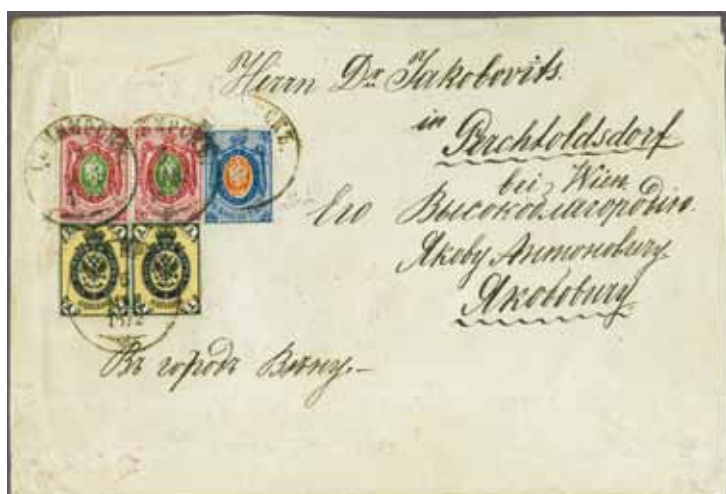 Herrn Dr Jakobovits
in
Perchtoldsdorf
bei Wien
Его Высокоблагородiю
Якову Антоновичу
Якобовичу
Въ городъ Вѣну.-